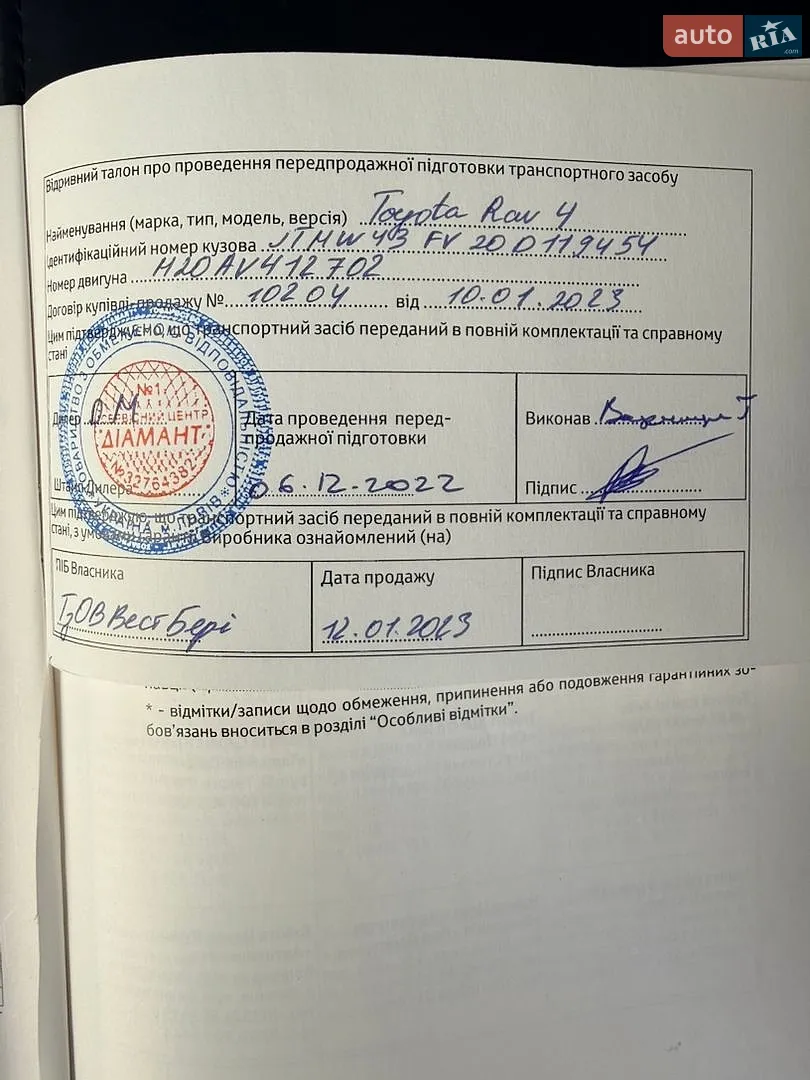 auto RIA .com
Відривний талон про проведення передпродажної підготовки транспортного засобу
Найменування (марка, тип, модель, версія) Toyota Rav 4
Ідентифікаційний номер кузова JTMW43FV20D119454
Номер двигуна M20AV412702
Договір купівлі-продажу № 10204 від 10.01.2023
Цим підтверджуємо що транспортний засіб переданий в повній комплектації та справному
стані
Дилер Д.М.
Дата проведення перед-
продажної підготовки
06.12.2022
Штамп Дилера
Виконав
Підпис
ТОВАРИСТВО З ОБМЕЖЕНОЮ ВІДПОВІДАЛЬНІСТЮ
УКРАЇНА М.ЛЬВІВ
№1
СЕРВІСНИЙ ЦЕНТР
ДІАМАНТ
№32764382
Цим підтверджую, що транспортний засіб переданий в повній комплектації та справному
стані, з умовами гарантії виробника ознайомлений (на)
ПІБ Власника
ТзОВ Вест Бері
Дата продажу
12.01.2023
Підпис Власника
* - відмітки/записи щодо обмеження, припинення або подовження гарантійних зо-
бов'язань вноситься в розділі "Особливі відмітки".